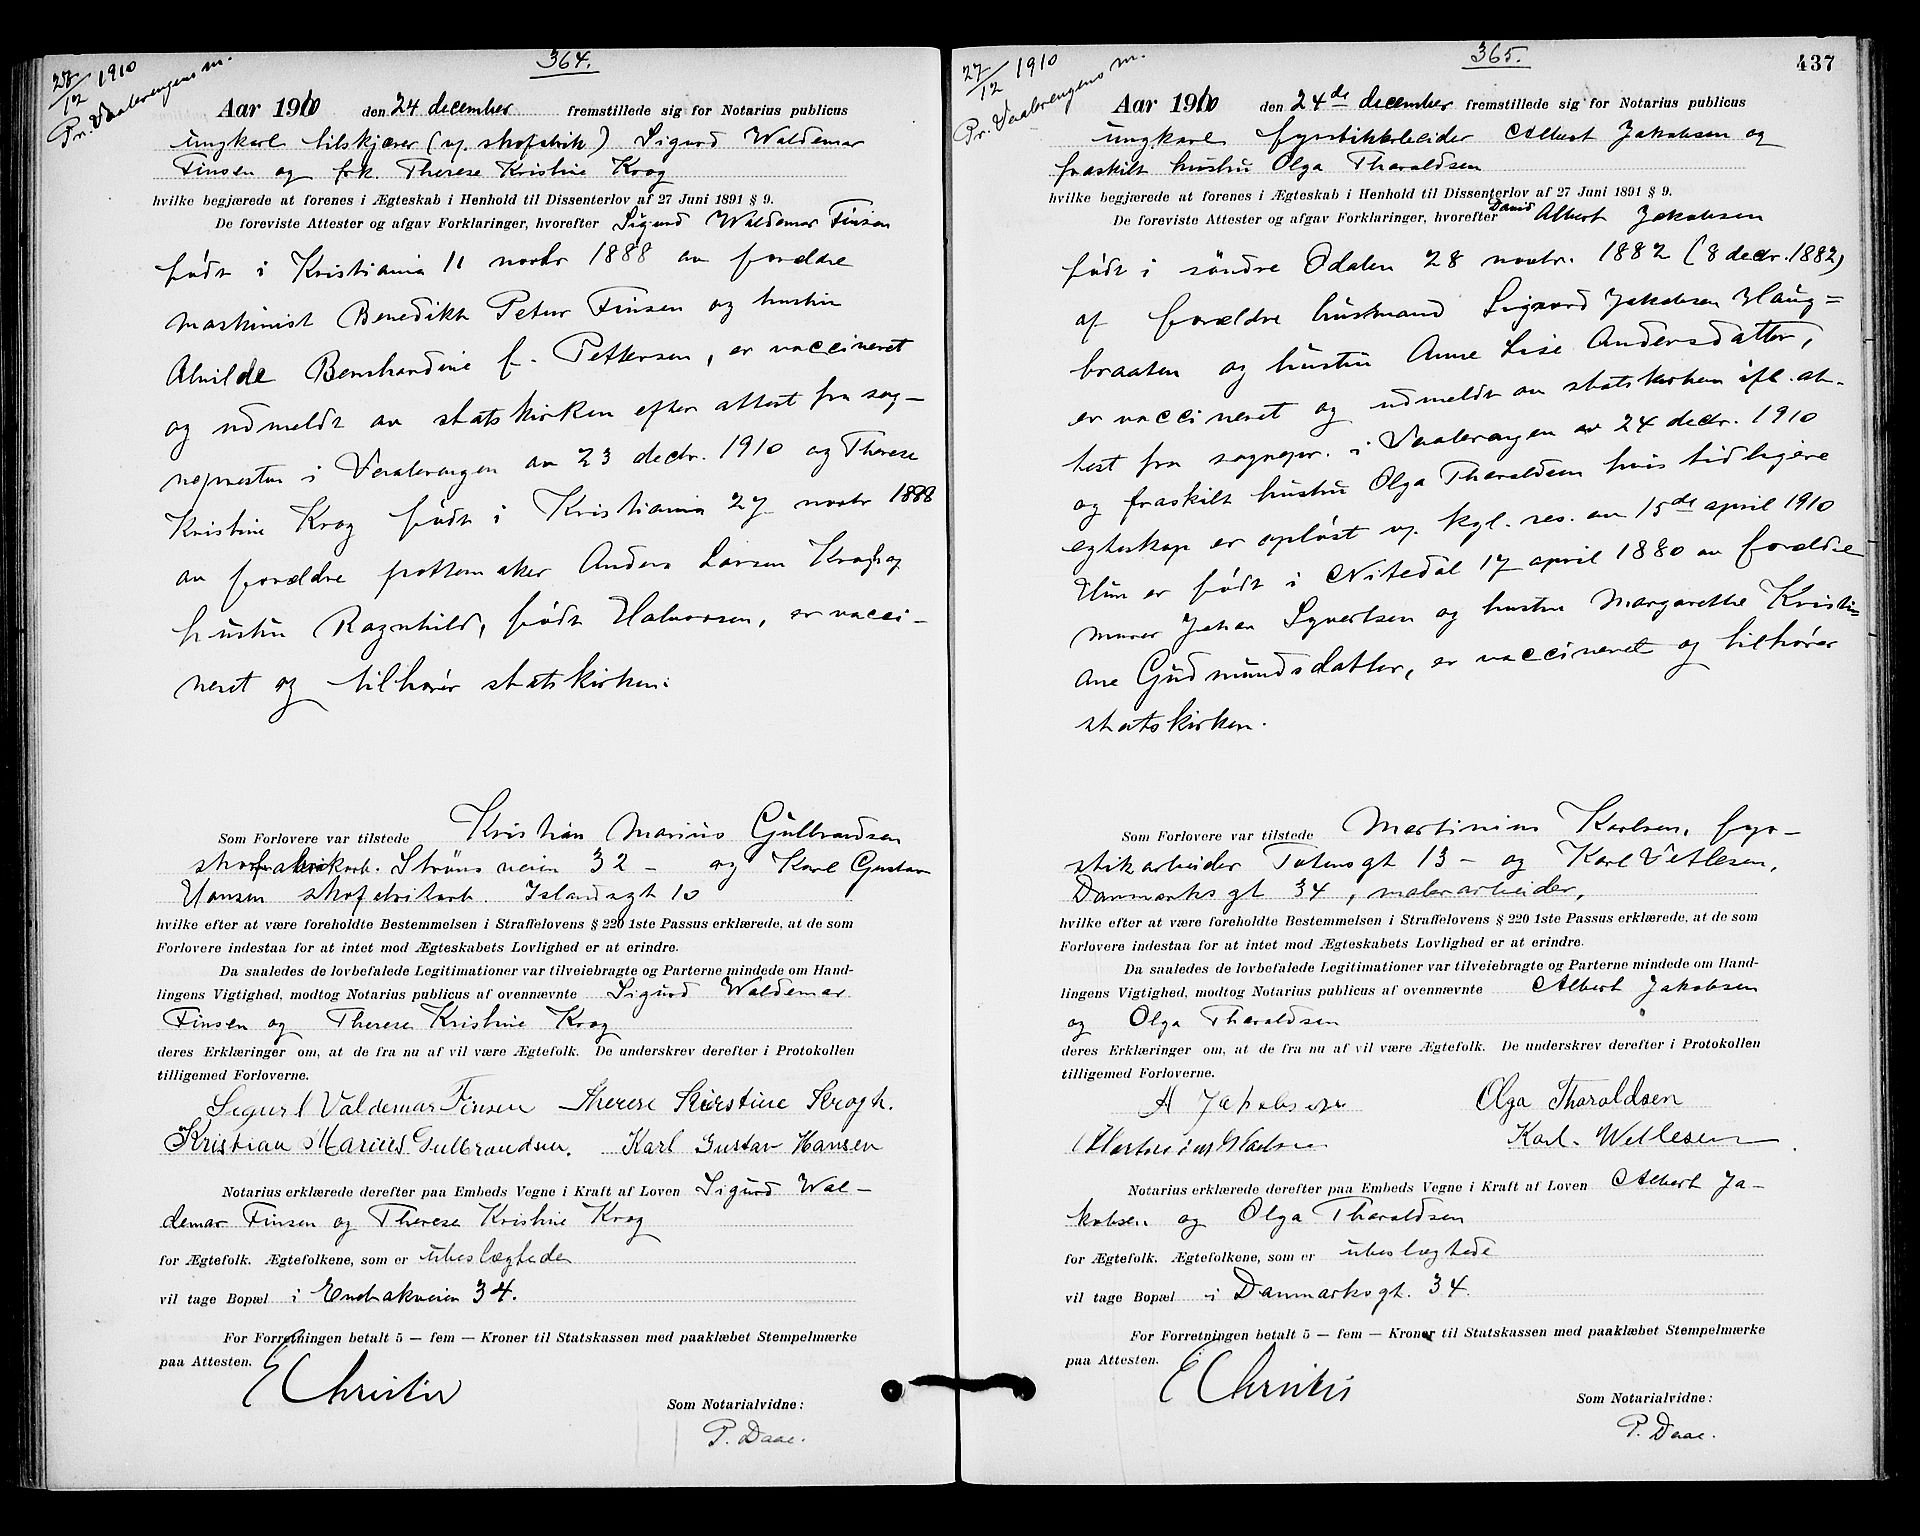 364.
27/12 1910
Pr. Vaalerengens m.
Aar 1910 den 24 december fremstillede sig for Notarius publicus
ungkarl tilskjærer (v. skofabrik) Sigurd Waldemar
Finsen og frk. Therese Kristine Krog
hvilke begjærede at forenes i Ægteskab i Henhold til Dissenterlov af 27 Juni 1891 § 9.
De foreviste Attester og afgav Forklaringer, hvorefter Sigurd Waldemar Finsen
født i Kristiania 11 novbr 1888 av forældre
maskinist Benedikt Petur Finsen og hustru
Alvilde Bernhardine f. Pettersen, er vaccineret
og udmeldt av statskirken efter attest fra sog-
nepresten i Vaalerengen av 23 decbr. 1910 og Therese
Kristine Krog født i Kristiania 27 novbr 1888
av forældre pottemaker Anders Larsen Krogh og
hustru Ragnhild, født Halvorsen, er vacci-
neret og tilhører statskirken.
Som Forlovere var tilstede Kristian Marius Gulbrandsen
skofabrikarb. Strøms veien 32 - og Karl Gustav
Hansen skofabrikarb. Islandsgt 10
hvilke efter at være foreholdte Bestemmelsen i Straffelovens § 220 1ste Passus erklærede, at de som
Forlovere indestaa for at intet mod Ægteskabets Lovlighed er at erindre.
Da saaledes de lovbefalede Legitimationer var tilveiebragte og Parterne mindede om Hand-
lingens Vigtighed, modtog Notarius publicus af ovennævnte Sigurd Waldemar
Finsen og Therese Kristine Krog
deres Erklæringer om, at de fra nu af vil være Ægtefolk. De underskrev derefter i Protokollen
tilligemed Forloverne.
Sigurd Valdemar Finsen Therese Kirstine Krogh.
Kristian Marius Gulbrandsen. Karl Gustav Hansen
Notarius erklærede derefter paa Embeds Vegne i Kraft af Loven Sigurd Wal-
demar Finsen og Therese Kristine Krog
for Ægtefolk. Ægtefolkene, som er ubeslægtede
vil tage Bopæl i Enebakveien 34.
For Forretningen betalt 5 — fem — Kroner til Statskassen med paaklæbet Stempelmærke
paa Attesten.
E Christie
Som Notarialvidne:
P. Daae.
365.
437
27/12 1910
Pr. Vaalerengens m.
Aar 1910 den 24de december fremstillede sig for Notarius publicus
ungkarl fyrstikarbeider Albert Jakobsen og
fraskilt hustru Olga Tharaldsen
hvilke begjærede at forenes i Ægteskab i Henhold til Dissenterlov af 27 Juni 1891 § 9.
De foreviste Attester og afgav Forklaringer, hvorefter David Albert Jakobsen
født i søndre Odalen 28 novbr. 1882 (8 decbr. 1882)
af forældre husmand Sigvard Jakobsen Haug=
braaten og hustru Anne Lise Andersdatter,
er vaccineret og udmeldt av statskirken ifl. at-
test fra sognepr. i Vaalerengen av 24 decbr. 1910
og fraskilt hustru Olga Tharaldsen hvis tidligere
egteskap er opløst v. kgl. res. av 15de april 1910
Hun er født i Nitedal 17 april 1880 av forældre
murer Johan Syvertsen og hustru Margarethe Kristi-
ane Gudmundsdatter, er vaccineret og tilhører
statskirken.
Som Forlovere var tilstede Martinius Karlsen, fyr-
stikarbeider Totensgt 13 - og Karl Vetlesen,
Danmarks gt 34, malerarbeider,
hvilke efter at være foreholdte Bestemmelsen i Straffelovens § 220 1ste Passus erklærede, at de som
Forlovere indestaa for at intet mod Ægteskabets Lovlighed er at erindre.
Da saaledes de lovbefalede Legitimationer var tilveiebragte og Parterne mindede om Hand-
lingens Vigtighed, modtog Notarius publicus af ovennævnte Albert Jakobsen
og Olga Tharaldsen
deres Erklæringer om, at de fra nu af vil være Ægtefolk. De underskrev derefter i Protokollen
tilligemed Forloverne.
A Jakobsen Olga Tharaldsen
Karl. Wetlesen
Notarius erklærede derefter paa Embeds Vegne i Kraft af Loven Albert Ja-
kobsen og Olga Tharaldsen
for Ægtefolk. Ægtefolkene, som er ubeslægtede
vil tage Bopæl i Danmarksgt. 34.
For Forretningen betalt 5 — fem — Kroner til Statskassen med paaklæbet Stempelmærke
paa Attesten.
E Christie
Som Notarialvidne:
P. Daae.